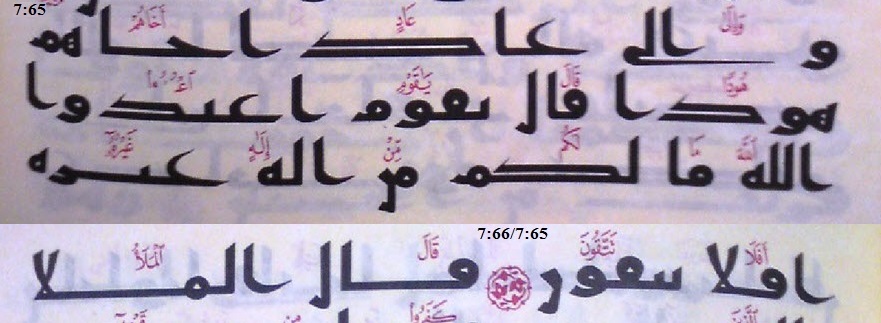 7:65
وَإِلَىٰ عَادٍ أَخَاهُمْ
والى عاد اخاهم
هُودًا قَالَ يَٰقَوْمِ ٱعْبُدُوا
هودا قال يقوم اعبدوا
ٱللَّهَ مَا لَكُم مِّنْ إِلَٰهٍ غَيْرُهُ
الله ما لكم من اله غيره
7:66/7:65
أَفَلَا تَتَّقُونَ قَالَ ٱلْمَلَأُ
افلا تتقون قال الملا
كَفَرُوا